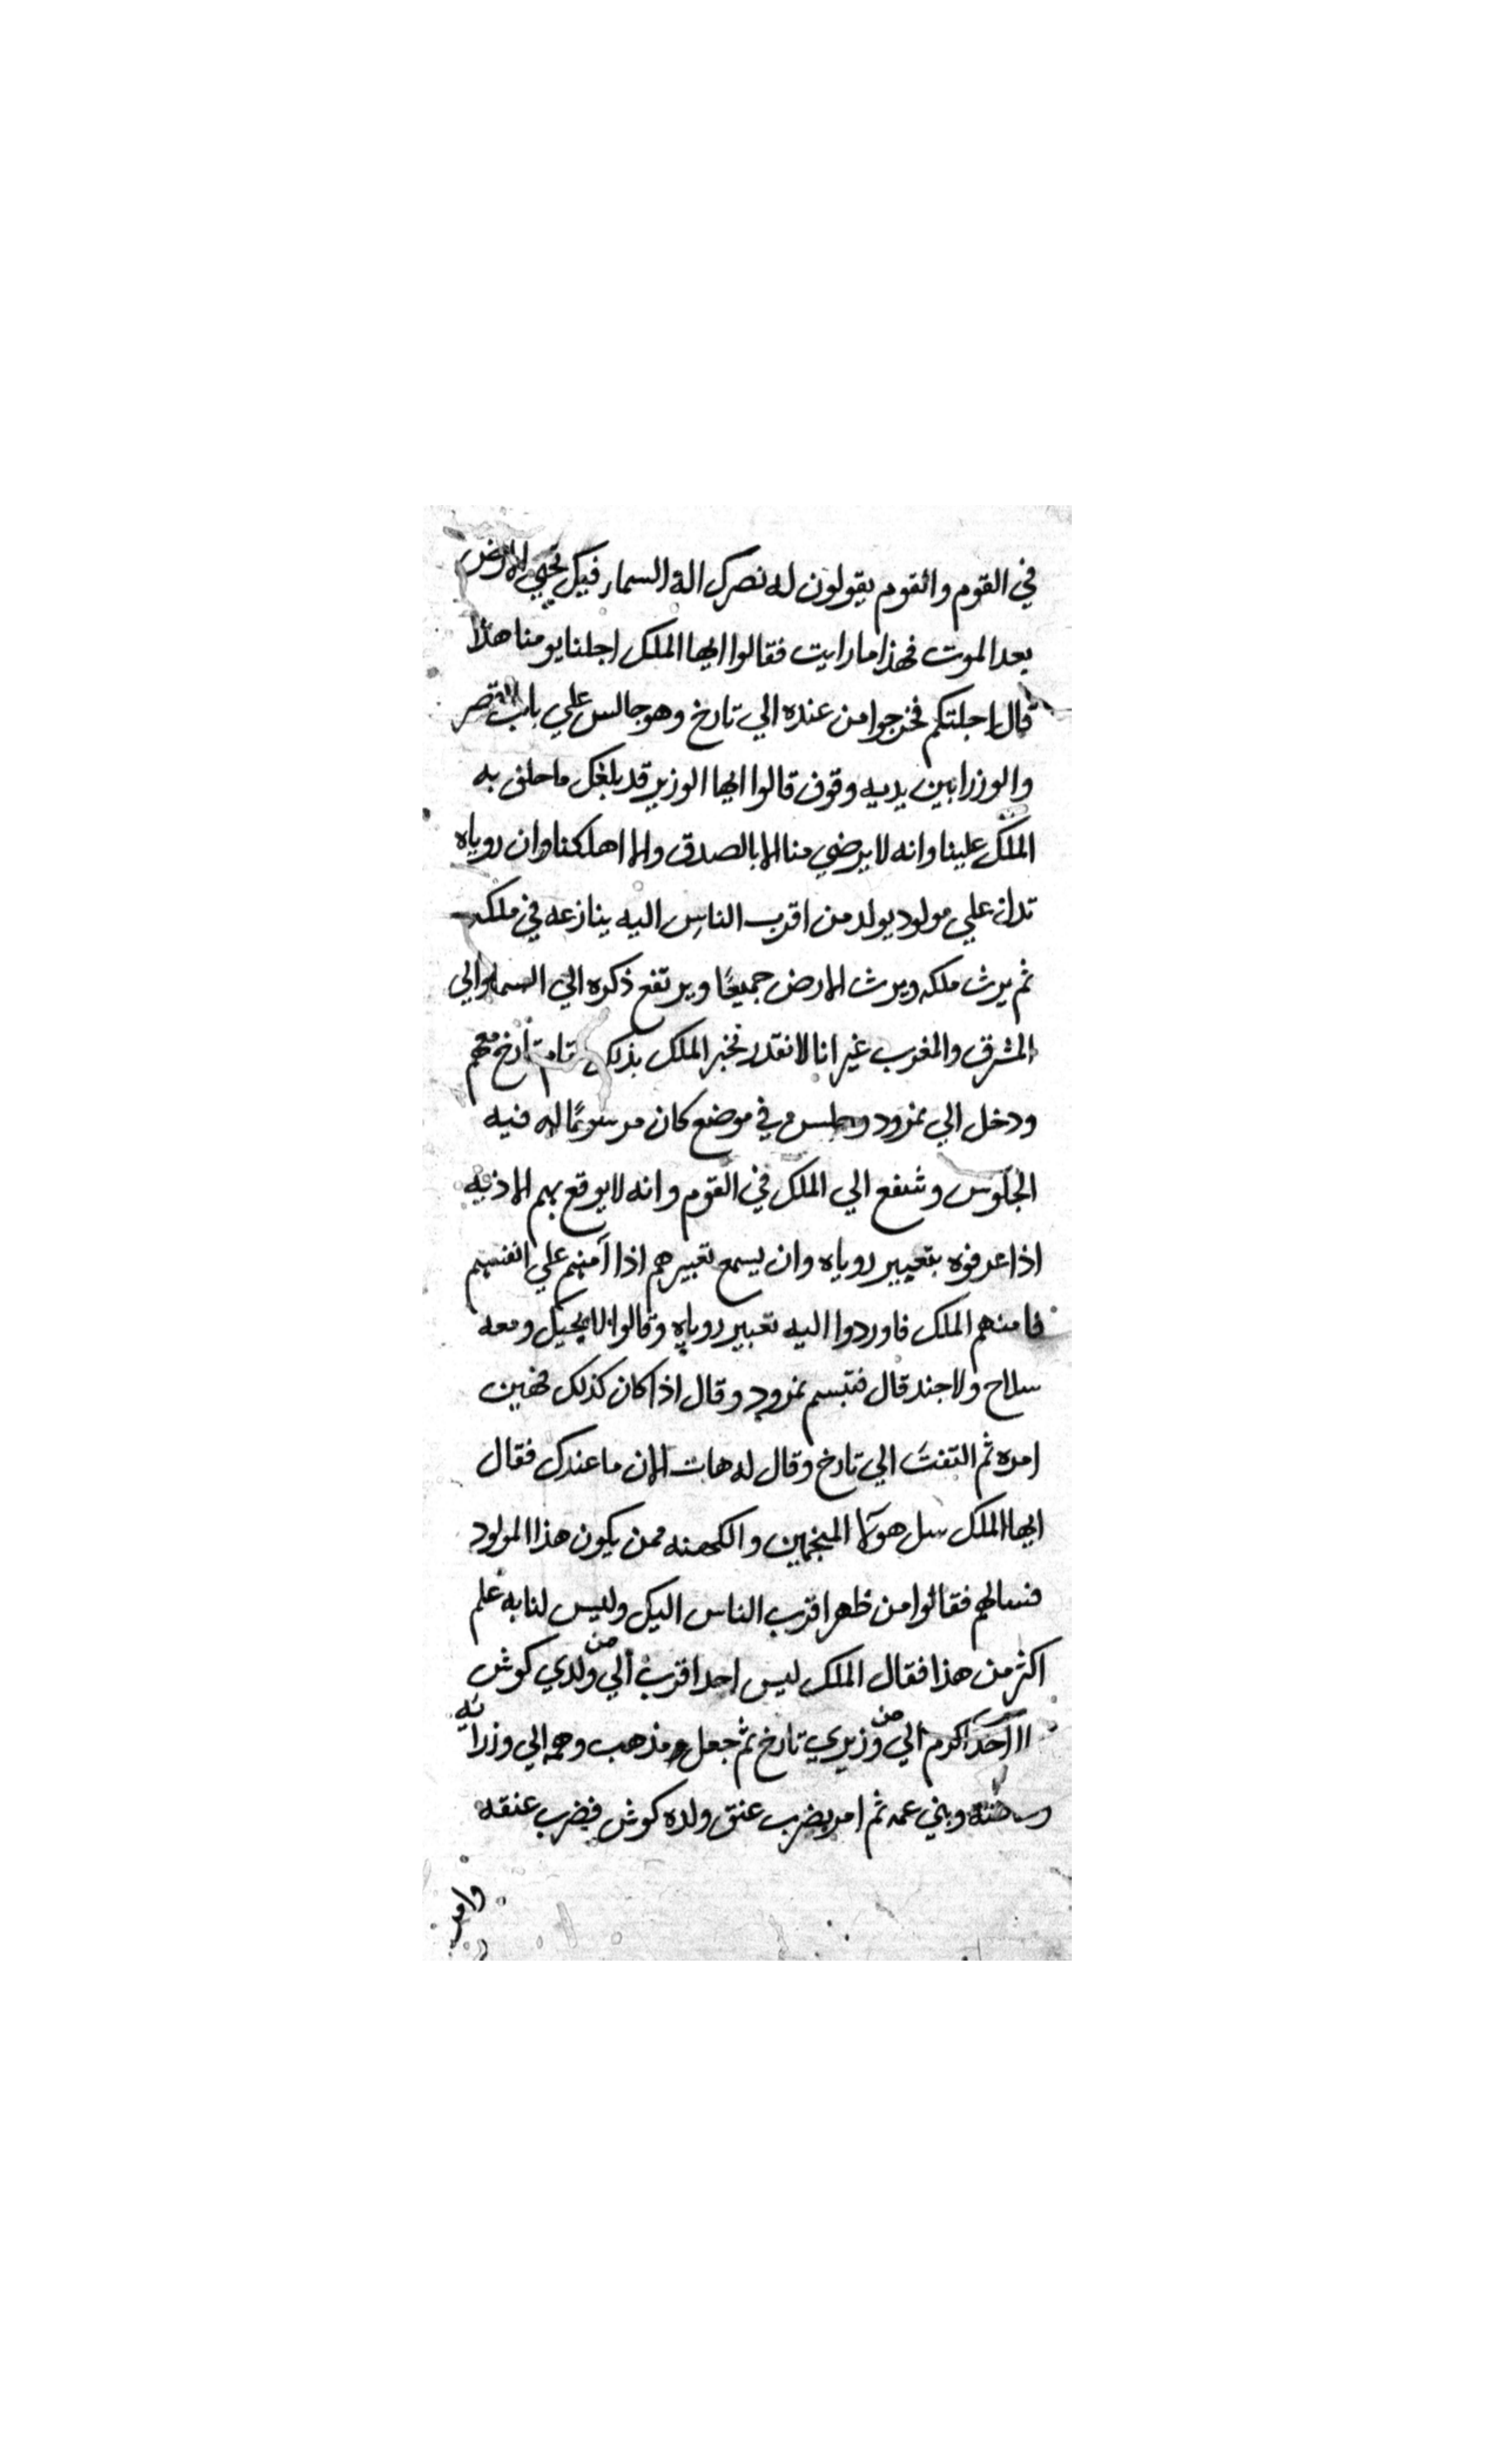 في القوم والقوم يقولون له نصرك اله السما فبك تحيي الارض
بعد الموت فهذا ما رايت فقالوا ايها الملك اجلنا يومنا هذا
قال اجلتكم فخرجوا من عنده الي تارخ وهو جالس علي باب القصر
والوزرا بين يديه وقوف قالوا ايها الوزير قد بلغك ما حلف به
الملك علينا وانه لا يرضي منا الا بالصدق والا اهلكنا وان روياه
تدل علي مولود يولد من اقرب الناس اليه ينازعه في ملكه
ثم يرث ملكه ويرث الارض جميعًا ويرتفع ذكره الي السما والي
المشرق والمغرب غير انا لا نقدر نخبر الملك بذلك قام تارخ معهم
ودخل الي نمرود وجلس في موضع كان مرسومًا له فيه
الجلوس وشفع الي الملك في القوم وانه لا يوقع بهم الاذيه
اذا عرفوه بتعبير روياه وان يسمع تعبيرهم اذا آمنهم علي انفسهم
فامنهم الملك فاوردوا اليه تعبير روياه وقالوا لا يجيك ومعه
سلاح ولا جند قال فتبسم نمرود وقال اذا كان كذلك فهين
امره ثم التفت الي تارخ وقال له هات الان ما عندك فقال
ايها الملك سل هولآ المنجمين والكهنه ممن يكون هذا المولود
فسالهم فقالوا من ظهر اقرب الناس اليك وليس لنا به علم
اكثر من هذا فقال الملك ليس احد اقرب الي من ولدي كوش
احد اكرم الي من وزيري تارخ ثم جعل مذهب وهمه الي وزرائه
وبني عمه ثم امر بضرب عنق ولده كوش فضرب عنقه
وامر